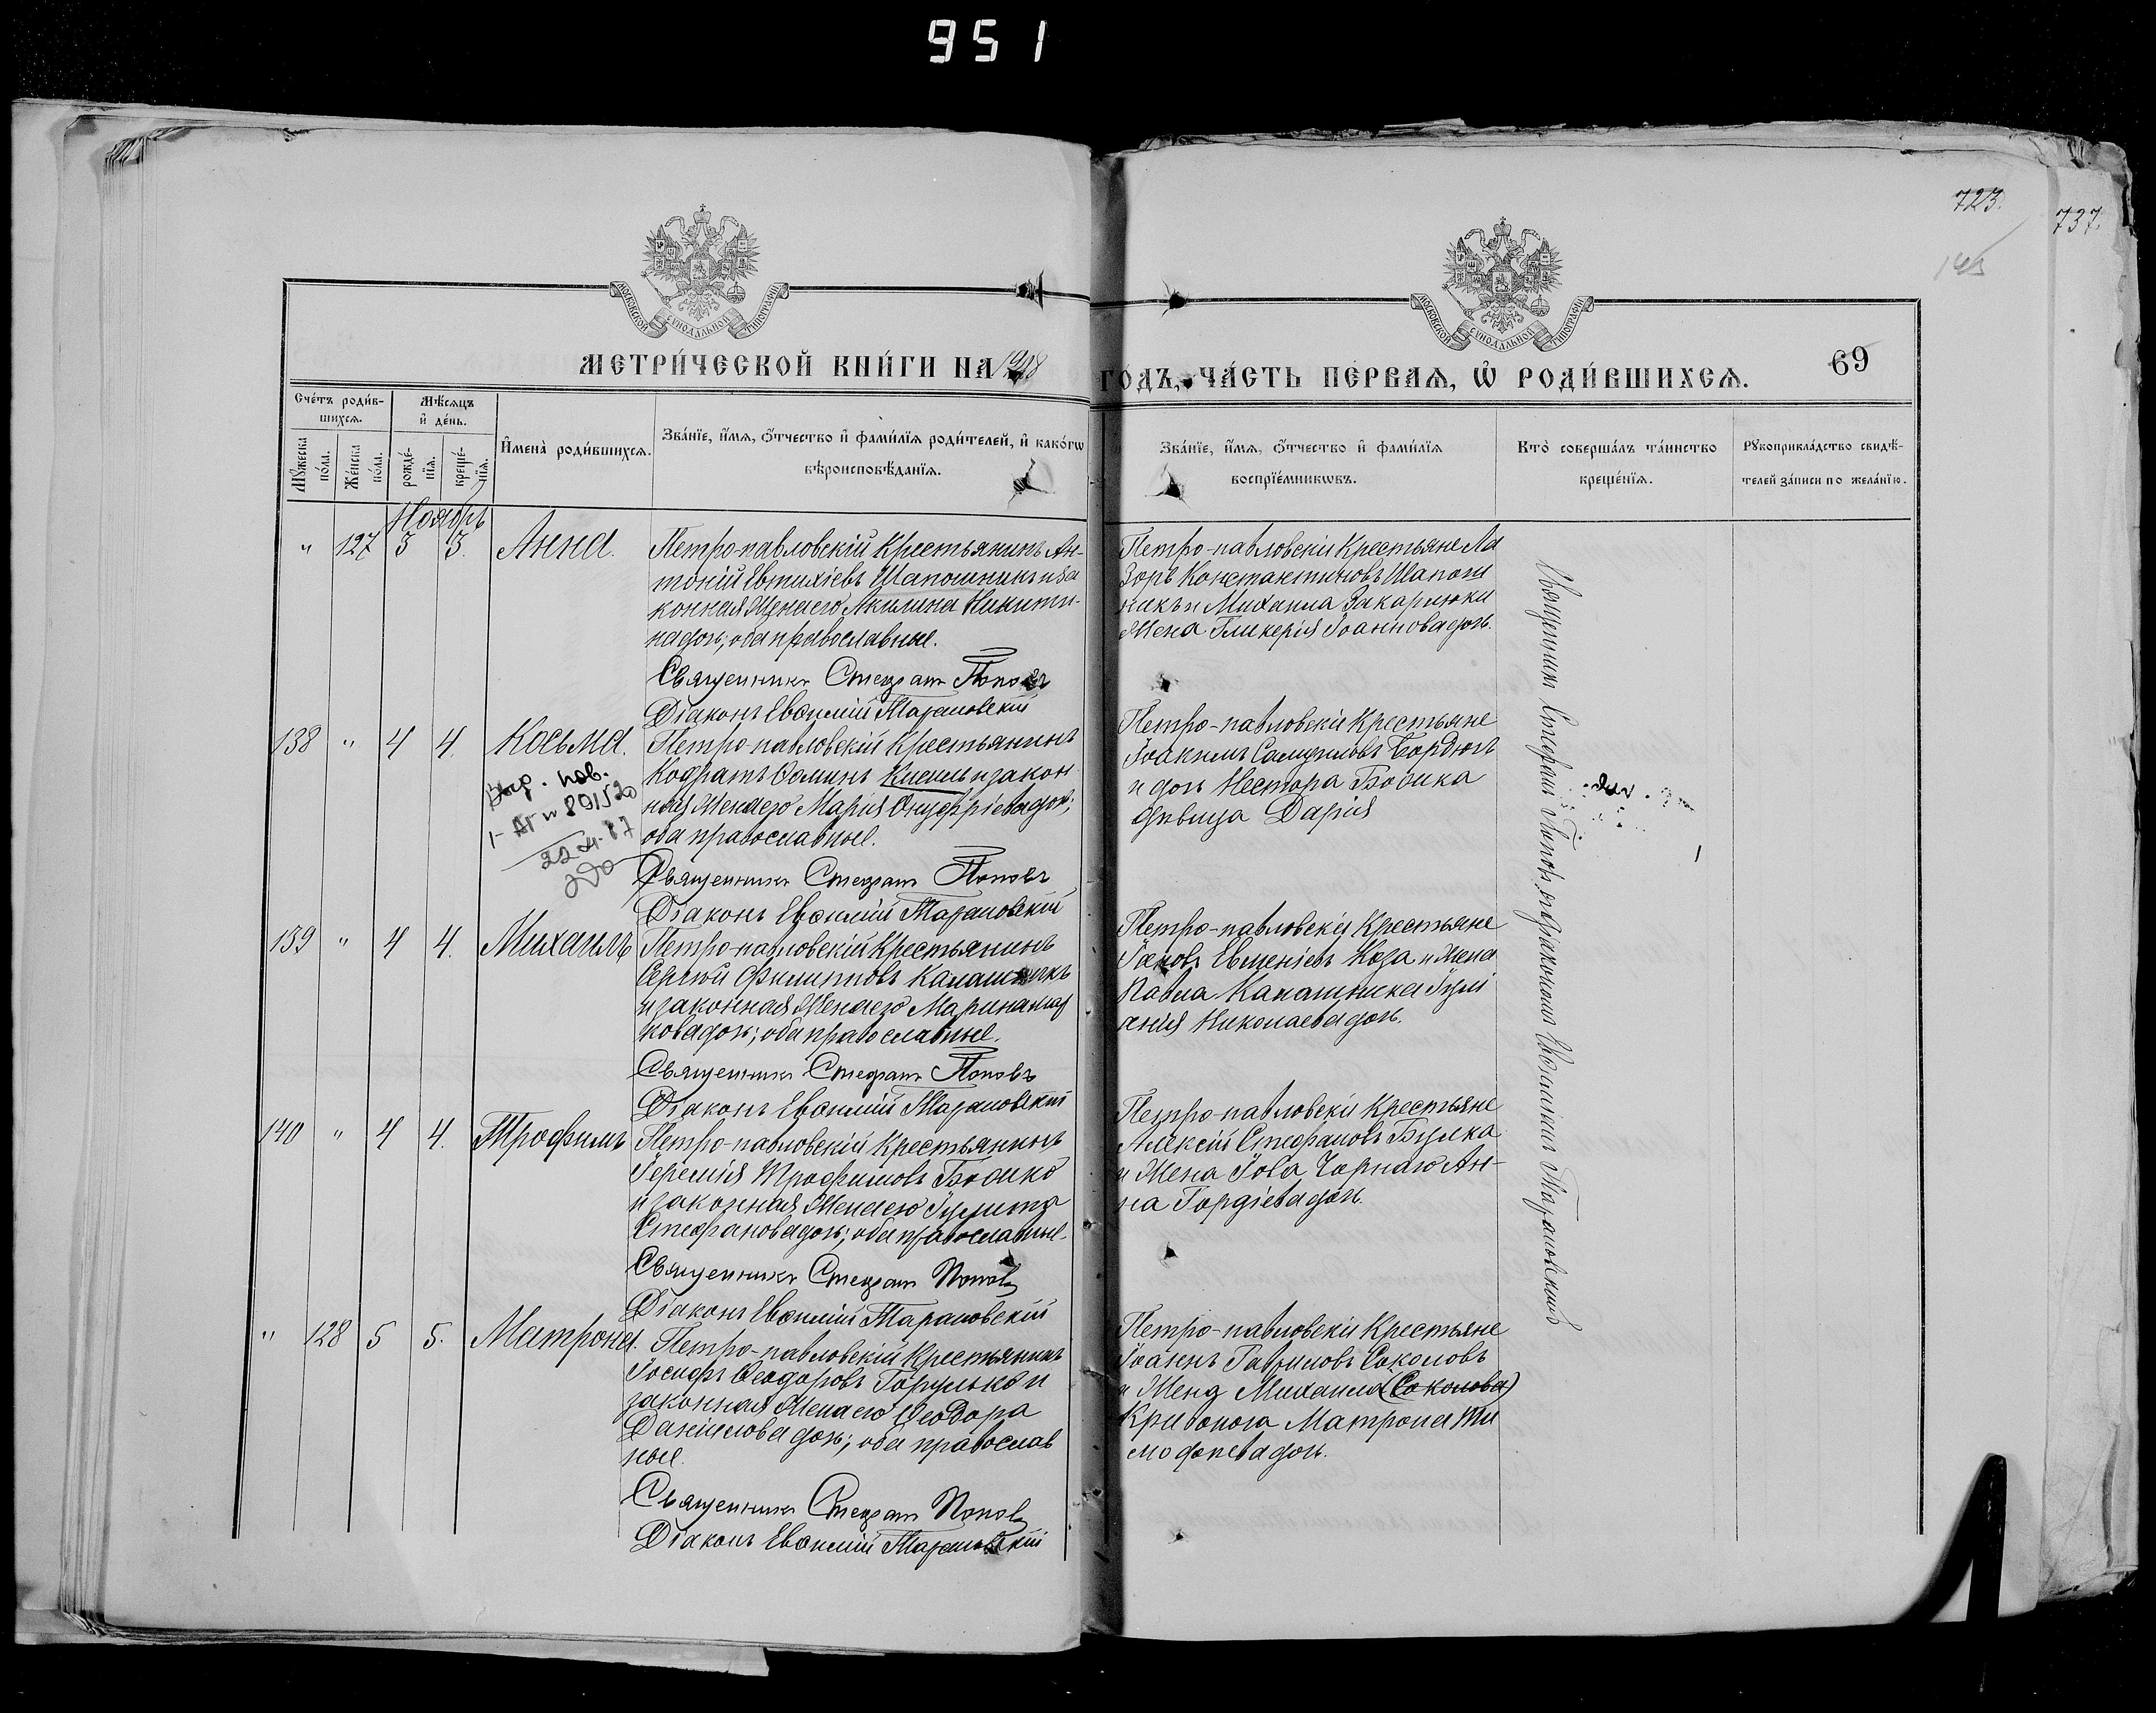 951
723.
737.
145
МОСКОВСКОЙ СѴНОДАЛЬНОЙ ТИПОГРАФІИ
МОСКОВСКОЙ СѴНОДАЛЬНОЙ ТИПОГРАФІИ
МЕТРИ́ЧЕСКОЙ КНИ́ГИ НА 1908
ГОДЪ, ЧА́СТЬ ПЕ́РВАЯ, Ѡ РОДИ́ВШИХСЯ.
69
Сче́тъ роди́в-
шихся.
Мѣ́сяцъ
и де́нь.
Мꙋ́жеска
по́ла.
Же́нска
по́ла.
рожде́-
нїя.
креще́-
нїя.
Имена̀ роди́вшихся.
Зва́нїе, и́мя, ѻ́тчество и фами́лїя роди́телей, и како́гѡ
вѣроисповѣ́данїя.
Зва́нїе, и́мя, ѻ́тчество и фами́лїя
воспрїе́мникѡвъ.
Кто̀ соверша́лъ та́инство
креще́нїя.
Рꙋкоприкла́дство свидѣ́-
телей за́писи по жела́нїю.
Ноябрь
" 127 3 3. Анна.
Петро-павловскій Крестьянинъ Ан-
тоній Евтихіевъ Шапошникъ и за
конная Жена его Акилина Никити-
на дочь, оба православные.
Священникъ Стефанъ Поповъ
Діаконъ Евѳимій Тарановскій
Петро-павловскіи Крестьяне Ла
зорь Константиновъ Шапош
никъ и Михаила Закарлюки
Жена Гликерія Іоаннова дочь.
138 " 4 4. Косьма.
Выд. пов.
Петро-павловскій Крестьянинъ
Кодратъ Ѳоминъ Кисель и закон
ная Жена его Марія Онуфріева дочь;
оба православные.
Священникъ Стефанъ Поповъ
Діаконъ Евѳимій Тарановскій
Петро-павловскіи Крестьяне
Іоакимъ Самуиловъ Бордюгъ
и дочь Нестора Бовика
дѣвица Дарія
139 " 4 4. Михаилъ
Петро-павловскій Крестьянинъ
Сергѣй Филипповъ Калашникъ
и законная Жена его Марина Мар
кова дочь; оба православные.
Священникъ Стефанъ Поповъ
Діаконъ Евѳимій Тарановскій
Петро-павловскіи Крестьяне
Іаковъ Евменіевъ Коза и Жена
Павла Калашника Іулі
анія Николаева дочь.
140 " 4 4. Трофимъ
Петро-павловскій Крестьянинъ
Іеремія Трофимовъ Бовико
и законная Жена его Іулита
Стефанова дочь; оба православные.
Священникъ Стефанъ Поповъ
Діаконъ Евѳимій Тарановскій
Петро-павловскіи Крестьяне
Алексій Стефановъ Буцка
и Жена Іова Чорнаго Ан-
на Гордіева дочь.
" 128 5 5. Матрона.
Петро-павловскій Крестьянинъ
Іосифъ Ѳеодоровъ Горулько и
законная Жена его Ѳеодора
Даніилова дочь; оба православ
ные.
Священникъ Стефанъ Поповъ
Діаконъ Евѳимій Тарановскій
Петро-павловскіи Крестьяне
Іоаннъ Гавриловъ Соколовъ
и Жена Михаила (Соколова)
Кривонога Матрона Ти
моѳеева дочь.
Священникъ Стефанъ Поповъ, съ діакономъ Евѳиміемъ Тарановскимъ